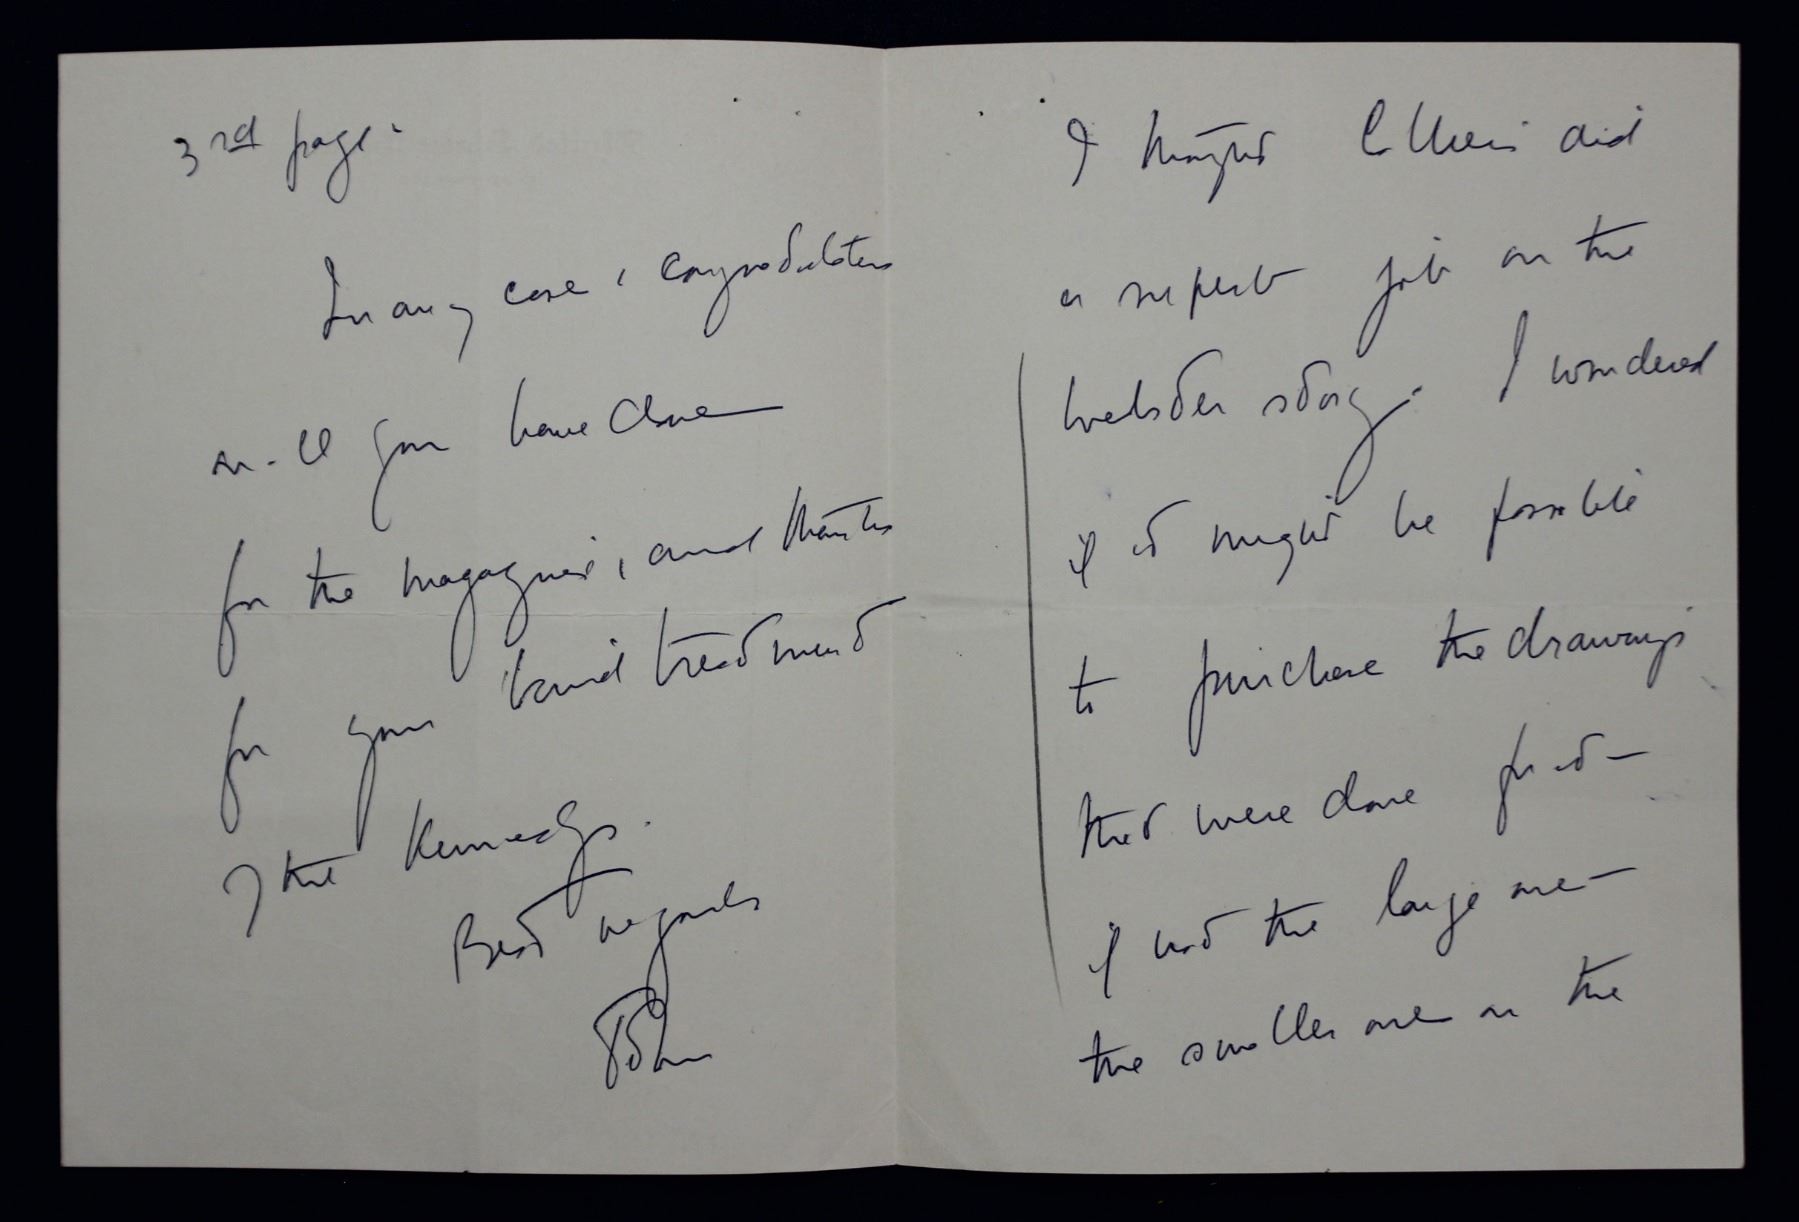 3rd page.
In any case, congratulations
on all you have done
for the magazine, and thanks
for your kind treatment
of the Kennedys.
Best regards
John
I thought Colliers did
a superb job on the
Webster story. I wondered
if it might be possible
to purchase the drawings
that were done for it –
if not the large one –
the smaller one on the